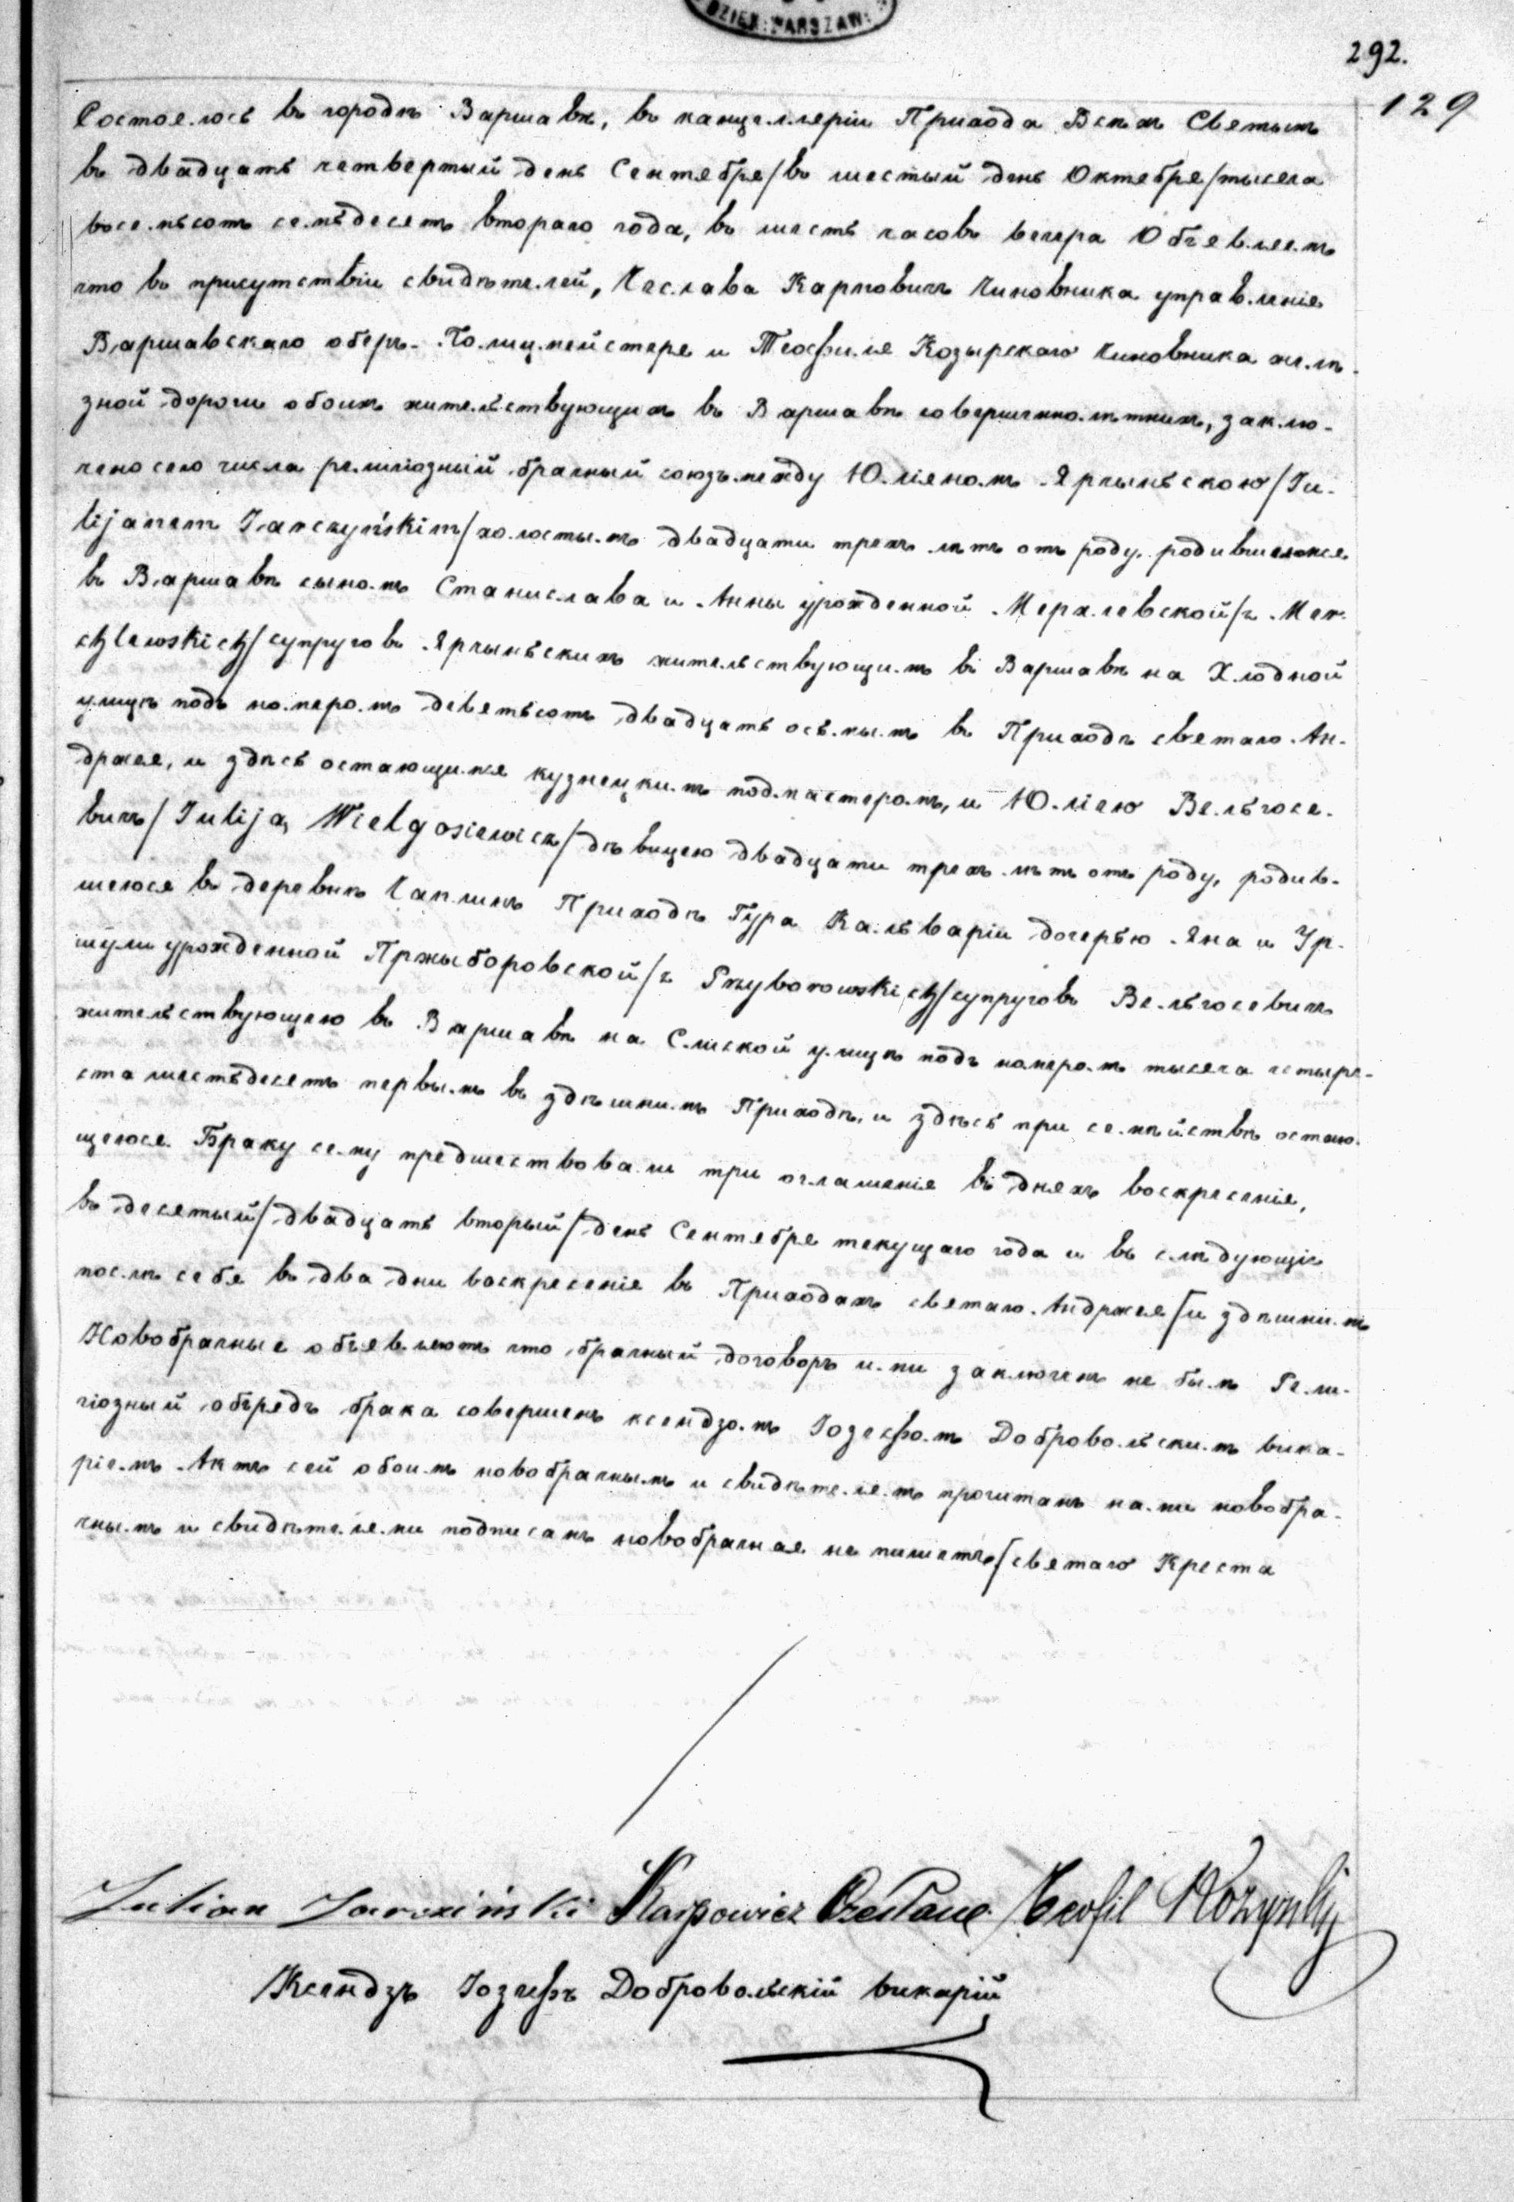 DZIEK. WARSZAW.
292.
129
Состоялось въ городѣ Варшавѣ, въ канцелляріи Прихода Всѣхъ Святыхъ
въ двадцать четвертый день Сентября/въ шестый день Октября/тысяча
восемьсотъ семьдесятъ втораго года, въ шесть часовъ вечера Объявляемъ
что въ присутствіи свидѣтелей, Чеслава Карповичъ Чиновника управленія
Варшавскаго оберъ-Полицмейстера и Теофиля Козырскаго Чиновника желѣ-
зной дороги обоихъ жительствующихъ въ Варшавѣ совершеннолѣтнихъ, заклю-
чено сего числа религіозный брачный союзъ между Юліяномъ Ярчыньскою/Ju-
lijanem Jarczyńskim/холостымъ двадцати трехъ лѣтъ отъ роду, родившемся
въ Варшавѣ сыномъ Станислава и Анны урожденной Мерхлевской/z Mer-
chlewskich/супруговъ Ярчыньскихъ жительствующимъ въ Варшавѣ на Хлодной
улицѣ подъ номеромъ девятьсотъ двадцать осьмымъ въ Приходѣ святаго Ан-
држея, и здѣсь остающимся кузнецкимъ подмастеромъ, и Юліею Вельгосе-
вичъ/Juliją Wielgosiewicz/дѣвицею двадцати трехъ лѣтъ отъ роду, родив-
шеюся въ деревнѣ Чаплинѣ Приходѣ Гура Кальваріи дочерью Яна и Ур-
шули урожденной Пржыборовской/z Przyborowskich/супруговъ Вельгосевичъ
жительствующею въ Варшавѣ на Слиской улицѣ подъ номеромъ тысяча четыре-
ста шестьдесятъ первымъ въ здѣшнимъ Приходѣ, и здѣсь при семѣйствѣ остаю-
щеюся. Браку сему предшествовали три оглашенія въ дняхъ воскресенія,
въ десятый/двадцать вторый/день Сентября текущаго года и въ слѣдующіе
послѣ себя въ два дни воскресенія въ Приходахъ святаго Андржея/и здѣшнимъ
Новобрачные объявляютъ что брачный договоръ ими заключенъ не былъ Рели-
гіозный обрядъ брака совершенъ ксендзомъ Іозефомъ Добровольскимъ вика-
ріемъ. Актъ сей обоимъ новобрачнымъ и свидѣтелямъ прочитанъ нами новобра-
чнымъ и свидѣтелями подписанъ новобрачная не пишетъ./святаго Креста
Julian Jarczińśki Karpowicz Czesław Teofil Kozyrski
Ксендзъ Іозефъ Добровольскій викарій